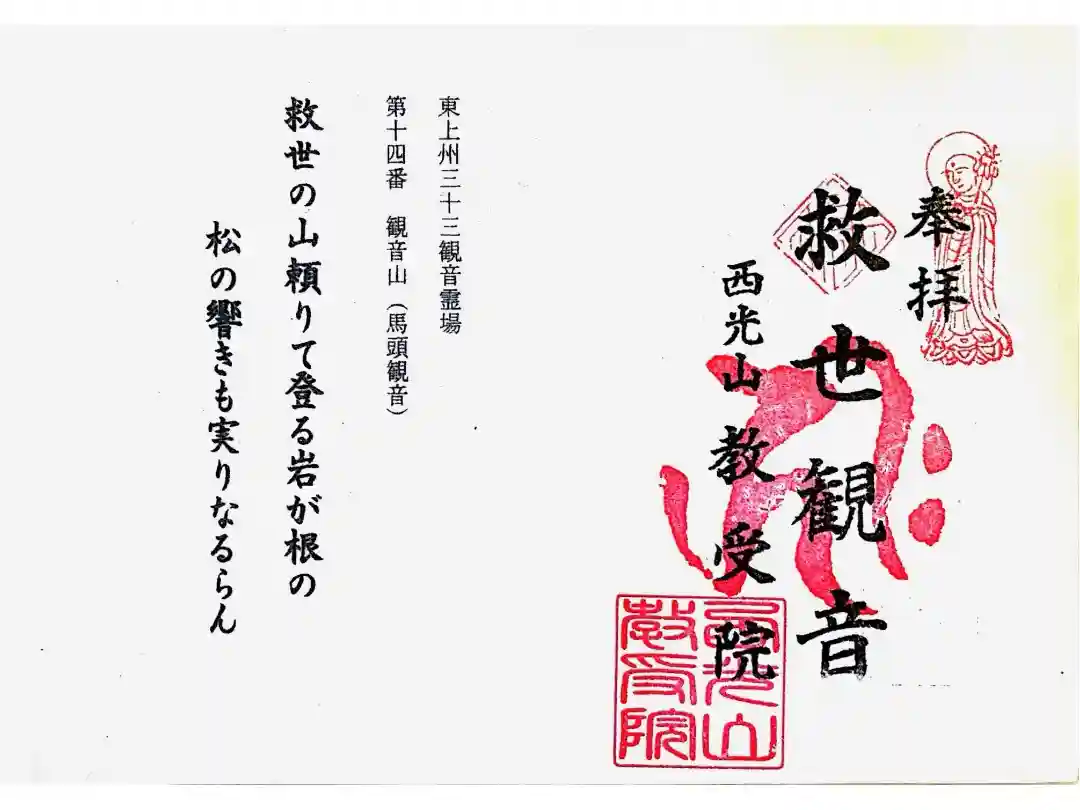 奉拝
救世観音
西光山教受院
西光山
教受院
東上州三十三観音霊場
第十四番　観音山（馬頭観音）
救世の山頼りて登る岩が根の
松の響きも実りなるらん